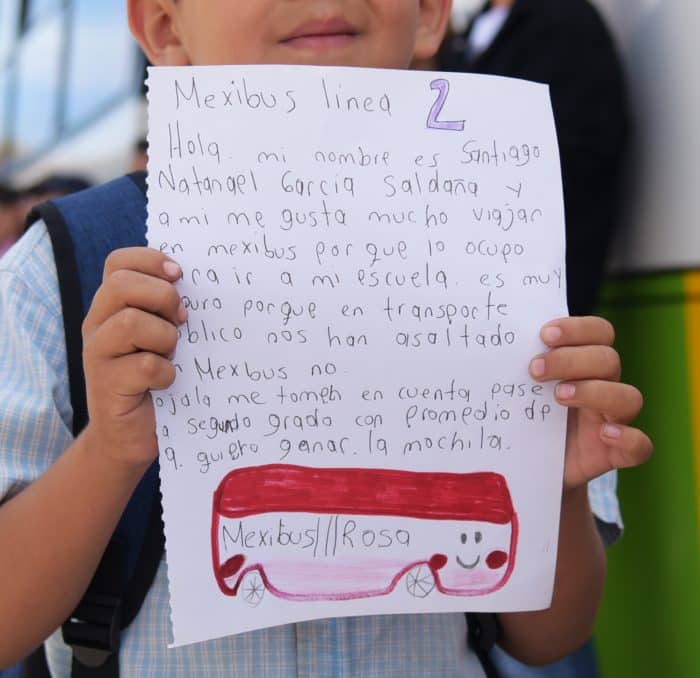 Mexibus linea 2
Hola. mi nombre es Santiago
Natanael Garcia Saldaña y
a mi me gusta mucho viajar
en mexibus por que lo ocupo
ara ir a mi escuela. es muy
uro porque en transporte
blico nos han asaltado
n Mexbus no.
ojala me tomen en cuenta pase
a segundo grado con promedio de
9. quiero ganar. la mochila.
Mexibus///Rosa